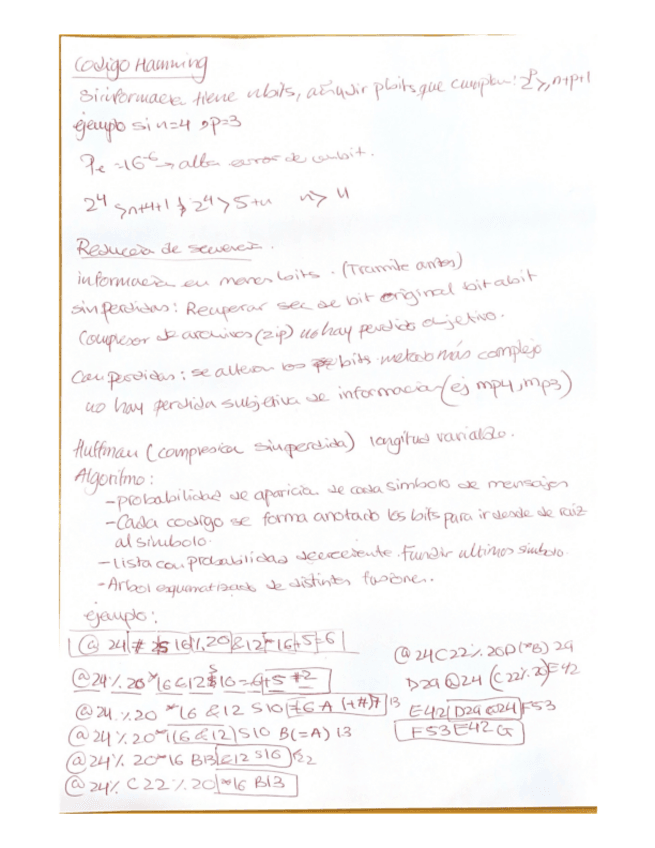 Codigo Hamming
Si informacia tiene n bits, añadir p bits, que cumplen: 2^p ≥ n+p+1
ejemplo si n=4 → p=3
Pe = 16^-6 → alta error de un bit.
2^4 ≥ n+4+1 2^4 > 5+n n > 4
Reducca de secuencia.
informacia en menos bits. (Tramite antes)
sin perdidas: Recuperar sec de bit original bit a bit
Compresor de archivos (zip) no hay perdida objetivo.
Con perdidas: se alteran los bits metodo más complejo
no hay perdida subjetiva de informacia (ej mp4, mp3)
Huffman (compresia sin perdida) longitud variable.
Algoritmo:
- probabilidad de aparicia de cada simbolo de mensajes
- Cada codigo se forma anotado los bits para ir desde de raiz
al simbolo.
- Lista con probabilidad decrecente. Fundir ultimos simbolo.
- Arbol esquematizado de distintas fusione.
ejemplo:
@ 24 # 16 % 20 & 12 * 16 + 5 = 6
@ 24 % 20 * 16 & 12 $ 10 = 6 + 5 # 2
@ 24 % 20 * 16 & 12 S 10 = 6 A (+#) 7 13
@ 24 % 20 * 16 & 12 S 10 B (=A) 13
@ 24 % 20 * 16 B13 & 12 S 10 22
@ 24 % C 22 % 20 * 16 B13
@ 24 C 22 % 20 D (*B) 29
D 29 @ 24 (C 22 % 20) E 42
E 42 D 29 @ 24 F 53
F 53 E 42 G